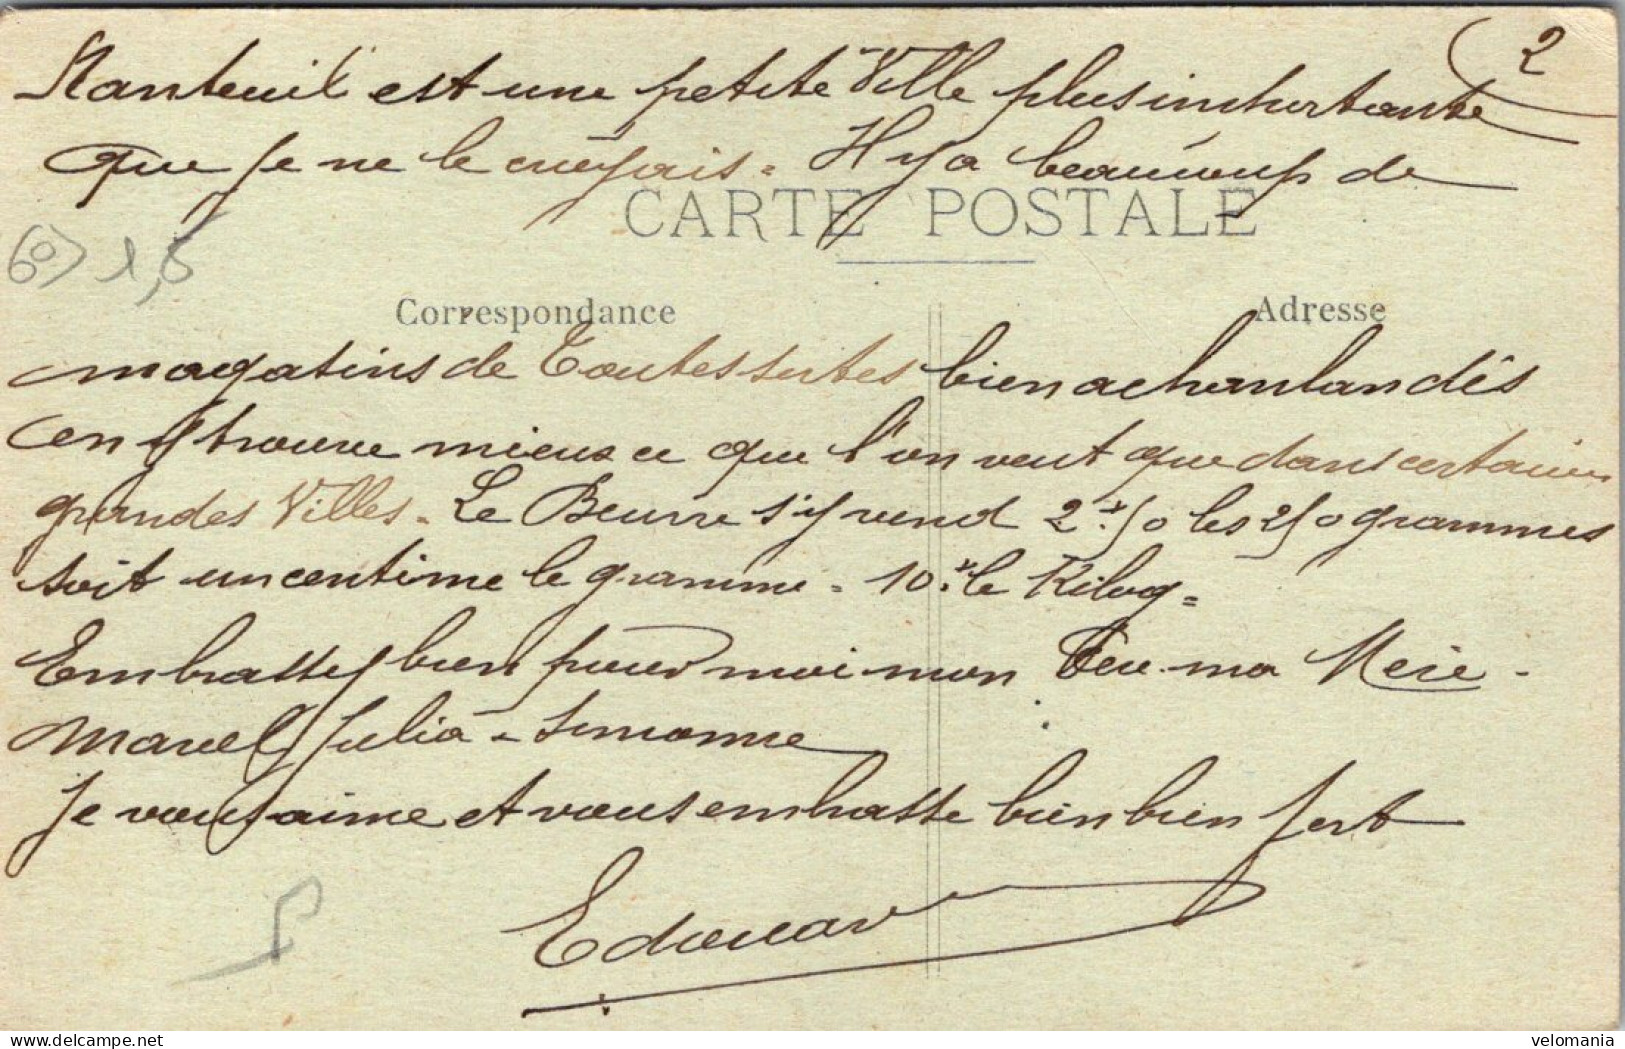 2
Nanteuil est une petite Ville plus importante
que je ne le croyais. Il y a beaucoup de
CARTE POSTALE
60) 1,5
Correspondance
Adresse
magasins de Toutes sortes bien achanlandés
on y trouve mieux ce que l'on veut que dans certaines
grandes Villes. Le Beurre s'y vend 2f.50 les 250 grammes
soit un centime le gramme. 10f. le Kilog=
Embrassez bien pour moi mon ma Mère -
Marcel Julia - Simonne
Je vous aime et vous embrasse bien bien fort
Edouard
delcampe.net
velomania